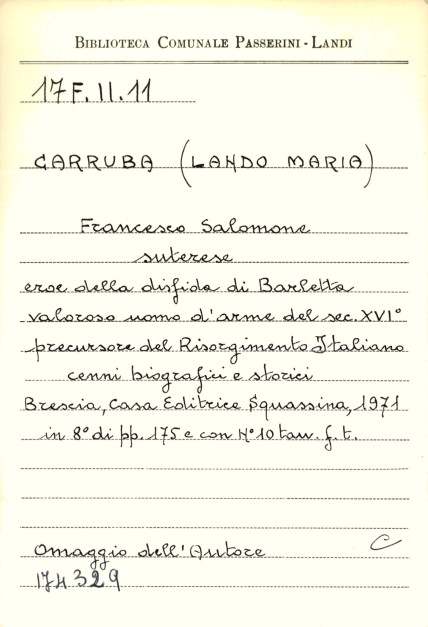 BIBLIOTECA COMUNALE PASSERINI-LANDI
17F.II.11
CARRUBA (LANDO MARIA)
Francesco Salomone
suterese
eroe della disfida di Barletta
valoroso uomo d'arme del sec.XVI°
precursore del Risorgimento Italiano
cenni biografici e storici
Brescia, Casa Editrice Squassina, 1971
in 8° di pp. 175 e con N° 10 tav. f. t.
Omaggio dell'Autore C
174329